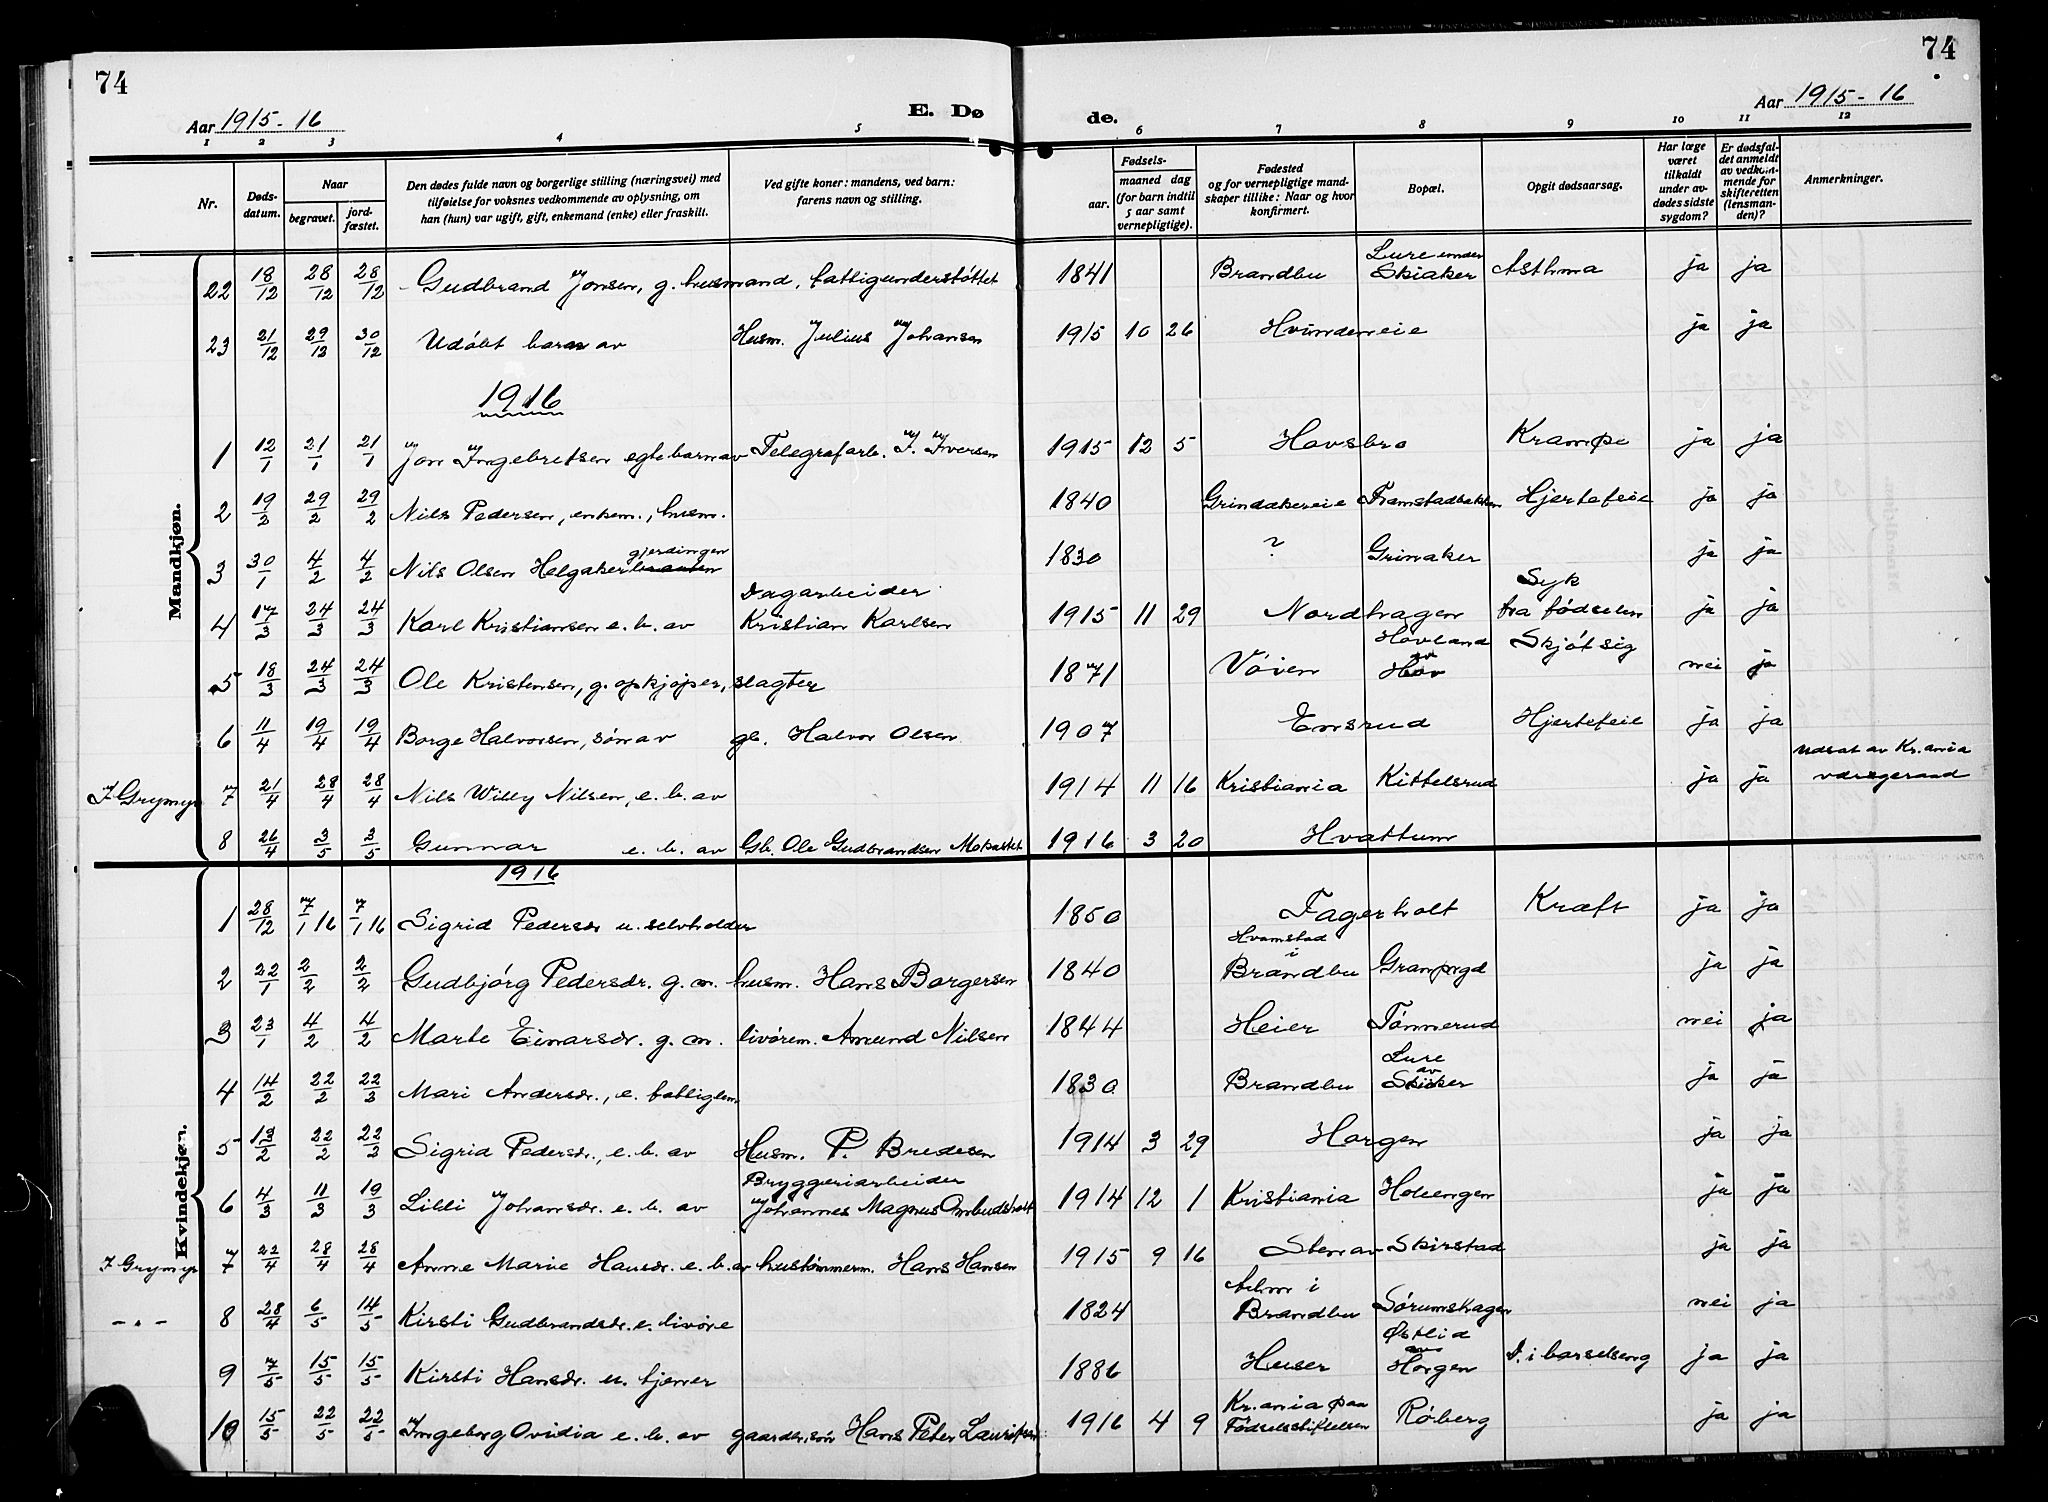 74
74
Aar 1915-16
E. Dø
de.
Aar 1915-16
1 2 3 4 5 6 7 8 9 10 11 12
Nr.
Døds-datum.
Naar
begravet.
jord-fæstet.
Den dødes fulde navn og borgerlige stilling (næringsvei) med tilføielse for voksnes vedkommende av oplysning, om han (hun) var ugift, gift, enkemand (enke) eller fraskilt.
Ved gifte koner: mandens, ved barn: farens navn og stilling.
Fødsels-
aar.
maaned dag (for barn indtil 5 aar samt vernepligtige).
Fødested og for vernepligtige mandskaper tillike: Naar og hvor konfirmert.
Bopæl.
Opgit dødsaarsag.
Har læge været tilkaldt under avdødes sidste sygdom?
Er dødsfaldet anmeldt av vedkommende for skifteretten (lensmanden)?
Anmerkninger.
Mandkjøn.
22 18/12 28/12 28/12 Gudbrand Jonsen, g. husmand, fattigunderstøttet 1841 Brandbu Lure under Skiaker Asthma ja ja
23 21/12 29/12 30/12 Udøbt barn av Husm. Julius Johansen 1915 10 26 Hvindeneie ja ja
1916
1 12/1 21/1 21/1 Jon Ingebretsen egte barn av Telegrafarb. I. Iversen 1915 12 5 Hovsbro Krampe ja ja
2 19/2 29/2 29/2 Nils Pedersen, enkem., husm. 1840 Grindakereie Framstadbakken Hjertefeie ja ja
3 30/1 4/2 4/2 Nils Olsen Helgaker gjerdingen 1830 ? Grinaker ja ja
4 17/3 24/3 24/3 Karl Kristiansen e. b. av Dagarbeider Kristian Karlsen 1915 11 29 Nordhagen Syk fra fødselen ja ja
5 18/3 24/3 24/3 Ole Kristensen, g. opkjøper, slagter 1871 Vøien Hovland av Hov Skjøt sig nei ja
6 11/4 19/4 19/4 Borge Halvorsen, søn av gb. Halvor Olsen 1907 Emsrud Hjertefeie ja ja
I Grymyr 7 21/4 28/4 28/4 Nils Willy Nilsen, e. b. av 1914 11 16 Kristiania Kittelsrud ja ja Udsat av Kr.ania værgeraad
8 26/4 3/5 3/5 Gunnar e. b. av Gb. Ole Gudbrandsen 1916 3 20 Hvattum
Kvindekjøn.
1916
1 28/12 7/1 16 7/1 16 Sigrid Pedersdr u. selvholder 1850 Fagerholt Kræft ja ja
2 22/1 2/2 2/2 Gudbjørg Pedersdr. g. m. husm. Hans Borgersen 1840 Hvamstad i Brandbu Granpygd ja ja
3 23/1 4/2 4/2 Marte Einarsdr. g. m. livørem. Amund Nilsen 1844 Heier Tømmerud nei ja
4 14/2 22/2 22/3 Mari Andersdr., e. fattiglem 1830 Brandbu Lure av Skiaker ja ja
5 19/2 22/2 22/3 Sigrid Pedersdr., e. b. av Husm. P. Bredesen 1914 3 29 Horgen ja ja
6 4/3 11/3 19/3 Lilli Johansdr. e. b. av Bryggeriarbeider Johannes Magnus 1914 12 1 Kristiania Hokengen ja ja
I Grymyr 7 22/4 28/4 28/4 Anne Marie Hansdr. e. b. av hustømmerm. Hans Hansen 1915 9 16 Sten av Skirstad ja ja
-"- 8 28/4 6/5 14/5 Kirsti Gudbrandsdr. e. livøre 1824 i Brandbu Sørumshagen nei ja
9 7/5 15/5 15/5 Kirsti Hansdr. u. tjener 1886 Huser Østlid av Horgen D. i barselseng ja ja
10 15/5 22/5 22/5 Ingeborg Ovidia e. b. av gaardersøn Hans Peter Lauritsen 1916 4 9 Kr.ania paa Fødselsstiftelsen Røberg ja ja